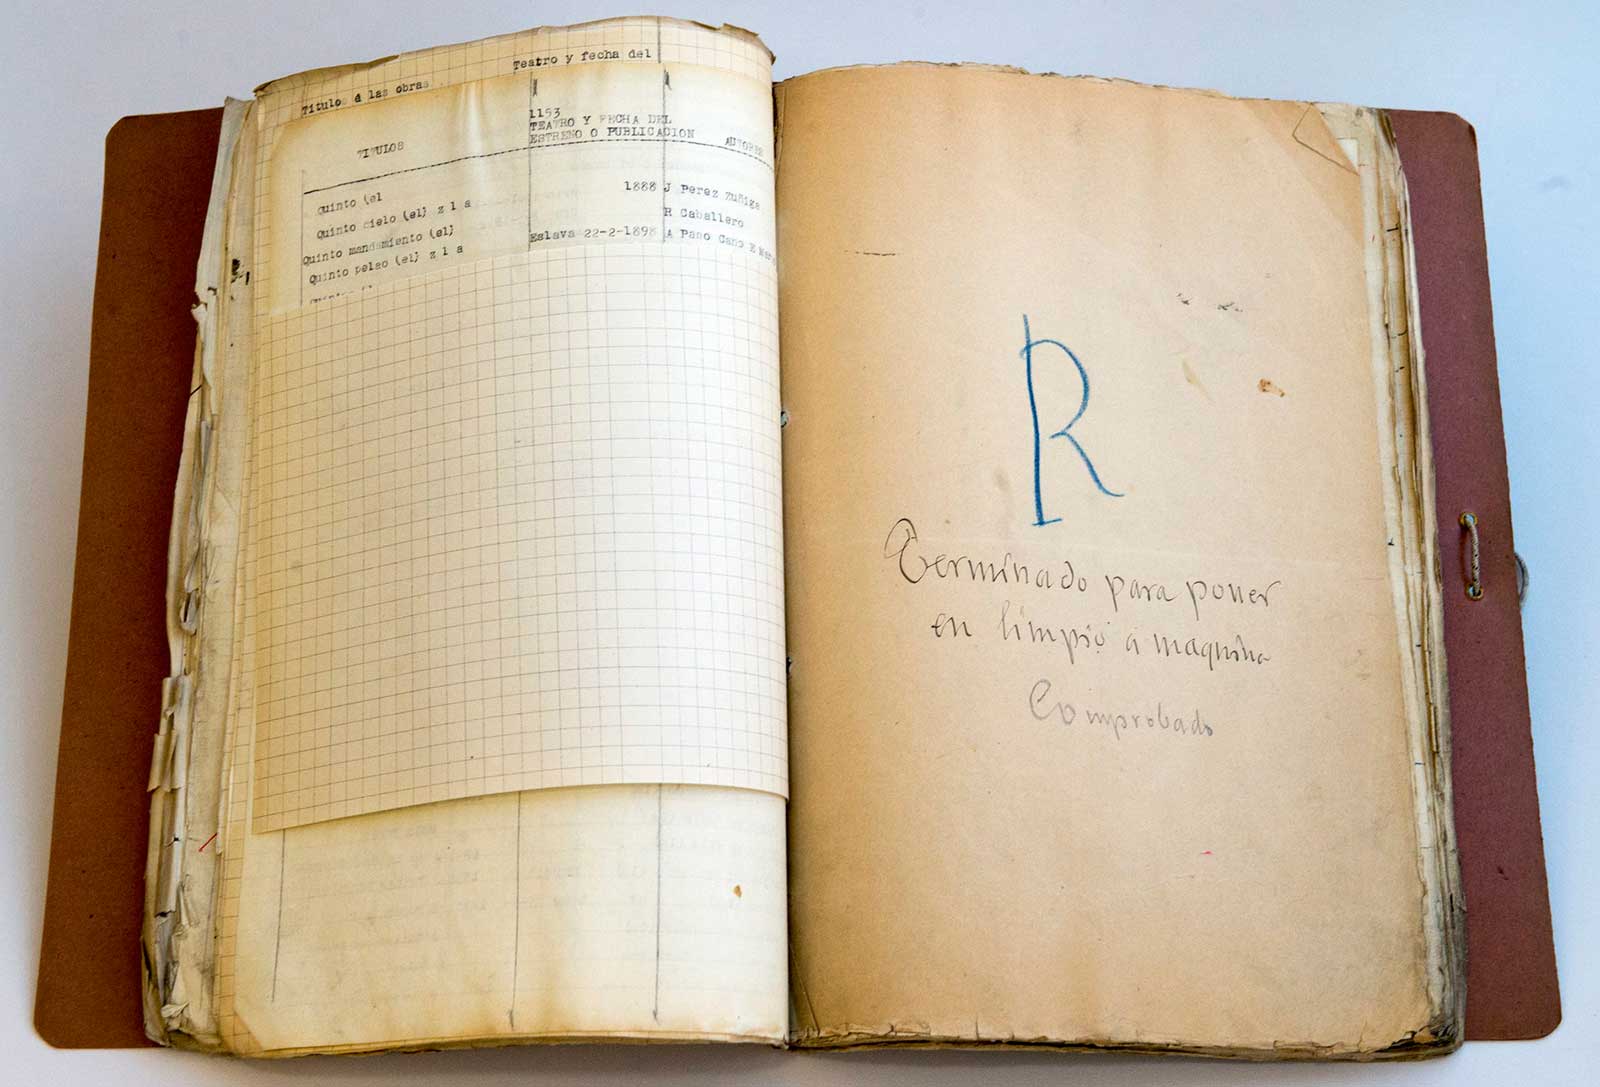 Teatro y fecha del
Titulos d las obras
1153
TEATRO Y FECHA DEL
ESTRENO O PUBLICACION
TITULOS
AUTORES
Quinto (el 1888 J Perez Zuñiga
Quinto cielo (el) z l a R Caballero
Quinto mandamiento (el) Eslava 22-2-1898 A Paso Cano E
Quinto pelao (el) z l a
R
Terminado para poner
en limpio a maquina
Comprobado